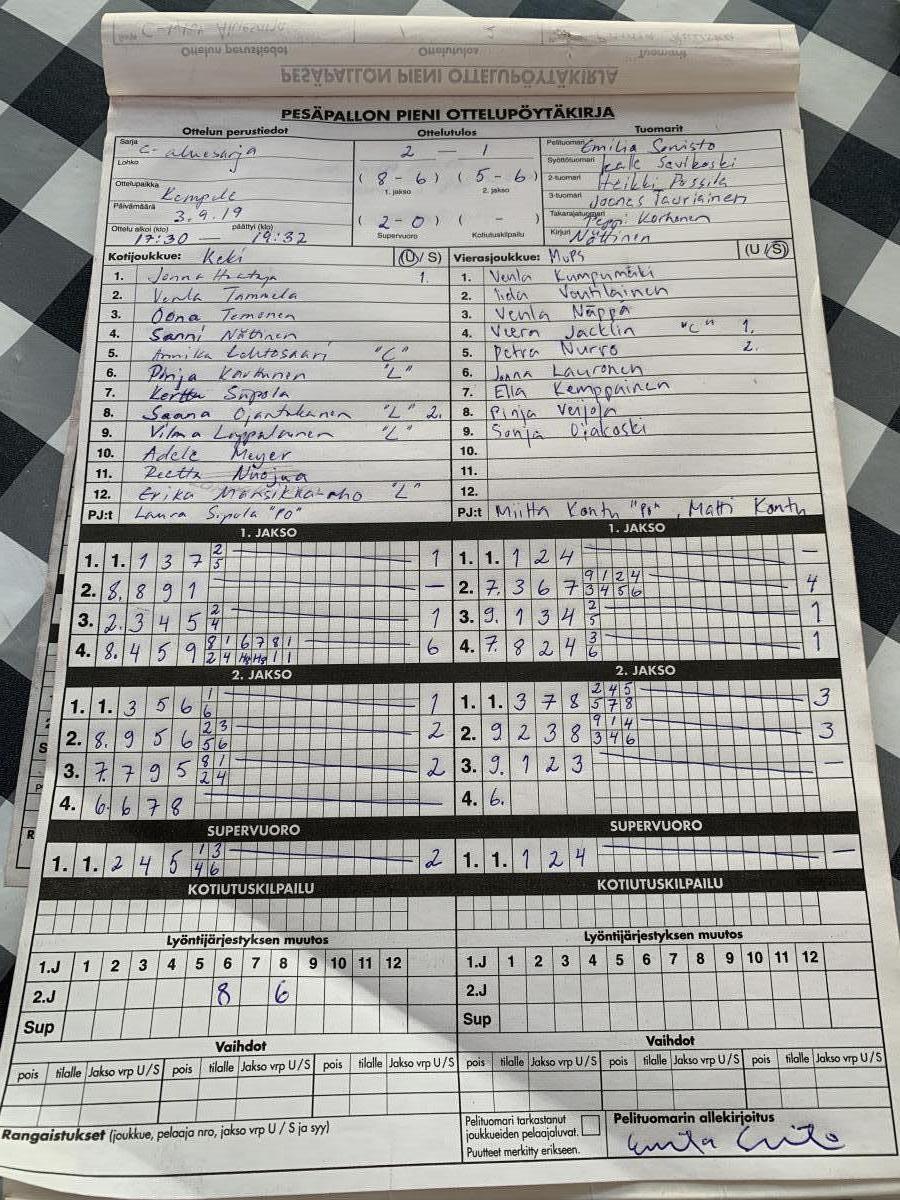 PESÄPALLON PIENI OTTELUPÖYTÄKIRJA
Ottelun perustiedot Ottelutulos Tuomarit
Sarja C-aluesarja
Lohko
Ottelupaikka Kempele
Päivämäärä 3.9.19
Ottelu alkoi (klo) päättyi (klo)
17:30 — 19:32
2 — 1
( 8 - 6 ) ( 5 - 6 )
1. jakso 2. jakso
( 2 - 0 ) ( - )
Supervuoro Kotiutuskilpailu
Pelituomari Emilia
Syöttötuomari Savikoski
2-tuomari Heikki Possila
3-tuomari Joonas Tauriainen
Takarajatuomari Peppi Korhonen
Kirjuri Nättinen
Kotijoukkue: Keki (U/ S)
1. Jonna Haataja 1.
2. Venla Tammela
3. Oona Temonen
4. Sanni Nättinen
5. Annika Lehtosaari "C"
6. Pinja Karhunen "L"
7. Kerttu Sipola
8. Saana Ojantakanen "L" 2.
9. Vilma Lappalainen "L"
10. Adele Meyer
11. Reetta Nuojua
12. Erika Mansikka-aho "L"
PJ:t Laura Sipola "PO"
Vierasjoukkue: MuPS (U /S)
1. Venla Kumpumäki
2. Iida Voutilainen
3. Venla Näppä
4. Veera Jacklin "C" 1.
5. Petra Nurro 2.
6. Jonna Lauronen
7. Ella Kemppainen
8. Pinja Veijola
9. Sonja Ojakoski
10.
11.
12.
PJ:t Miitta Kontu "PO", Matti Kontu
1. JAKSO
1. 1. 1 3 7 2 5 1
2. 8. 8 9 1 —
3. 2. 3 4 5 2 4 1
4. 8. 4 5 9 8 1 6 7 8 1 6
2 4 1 1
1. JAKSO
1. 1. 1 2 4 —
2. 7. 3 6 7 9 1 2 4 4
3 4 5 6
3. 9. 1 3 4 2 5 1
4. 7. 8 2 4 3 6 1
2. JAKSO
1. 1. 3 5 6 1 6 1
2. 8. 9 5 6 2 3 2
5 6
3. 7. 7 9 5 8 1 2
2 4
4. 6. 6 7 8
2. JAKSO
1. 1. 3 7 8 2 4 5 3
5 7 8
2. 9 2 3 8 9 1 4 3
3 4 6
3. 9. 1 2 3 —
4. 6.
SUPERVUORO
1. 1. 2 4 5 1 3 2
4 6
SUPERVUORO
1. 1. 1 2 4 —
KOTIUTUSKILPAILU
KOTIUTUSKILPAILU
Lyöntijärjestyksen muutos
1.J 1 2 3 4 5 6 7 8 9 10 11 12
2.J 8 6
Sup
Lyöntijärjestyksen muutos
1.J 1 2 3 4 5 6 7 8 9 10 11 12
2.J
Sup
Vaihdot
pois tilalle Jakso vrp U / S pois tilalle Jakso vrp U / S pois tilalle Jakso vrp U / S
Vaihdot
pois tilalle Jakso vrp U / S pois tilalle Jakso vrp U / S pois tilalle Jakso vrp U / S
Rangaistukset (joukkue, pelaaja nro, jakso vrp U / S ja syy)
Pelituomari tarkastanut
joukkueiden pelaajaluvat.
Puutteet merkitty erikseen.
Pelituomarin allekirjoitus